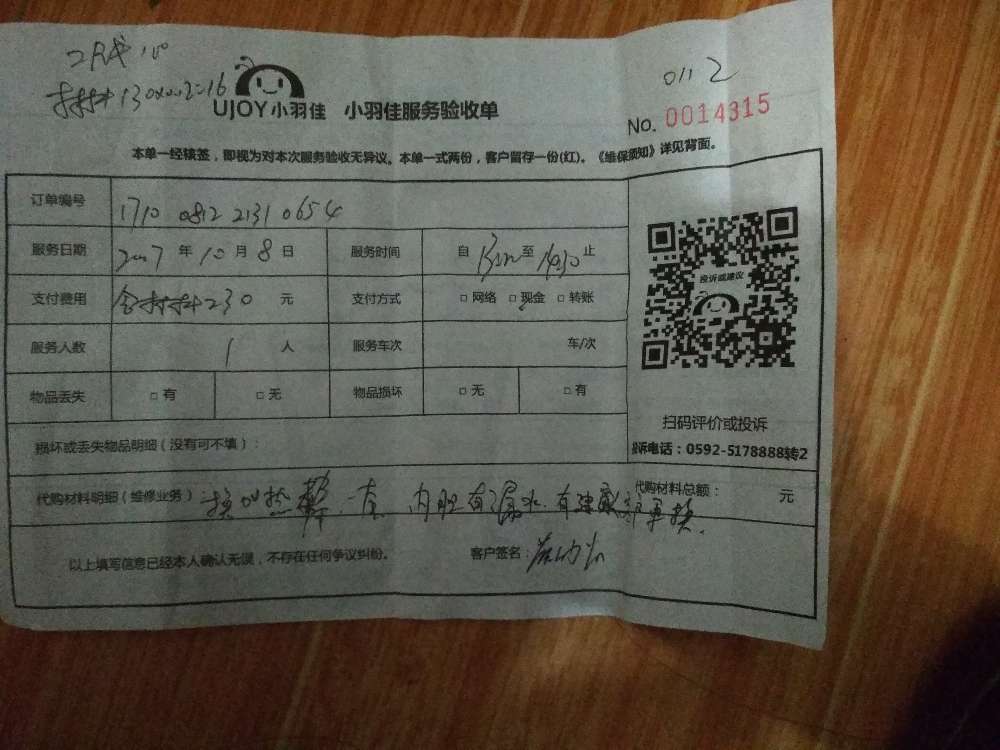 0112
UJOY小羽佳 小羽佳服务验收单
No. 0014315
本单一经核签，即视为对本次服务验收无异议。本单一式两份，客户留存一份(红)。《维保须知》详见背面。
订单编号 1710 0812 2131 0654
服务日期 年 10 月 8 日 服务时间 自 至 止
支付费用 含材料230 元 支付方式 □ 网络 □ 现金 □ 转账
服务人数 1 人 服务车次 车/次
物品丢失 □ 有 □ 无 物品损坏 □ 无 □ 有
投诉或建议
扫码评价或投诉
诉电话：0592-5178888转2
损坏或丢失物品明细（没有可不填）：
代购材料明细（维修业务） 换加热 一 内胆有漏水. 有建议 更换. 代购材料总额： 元
以上填写信息已经本人确认无误，不存在任何争议纠纷。 客户签名：